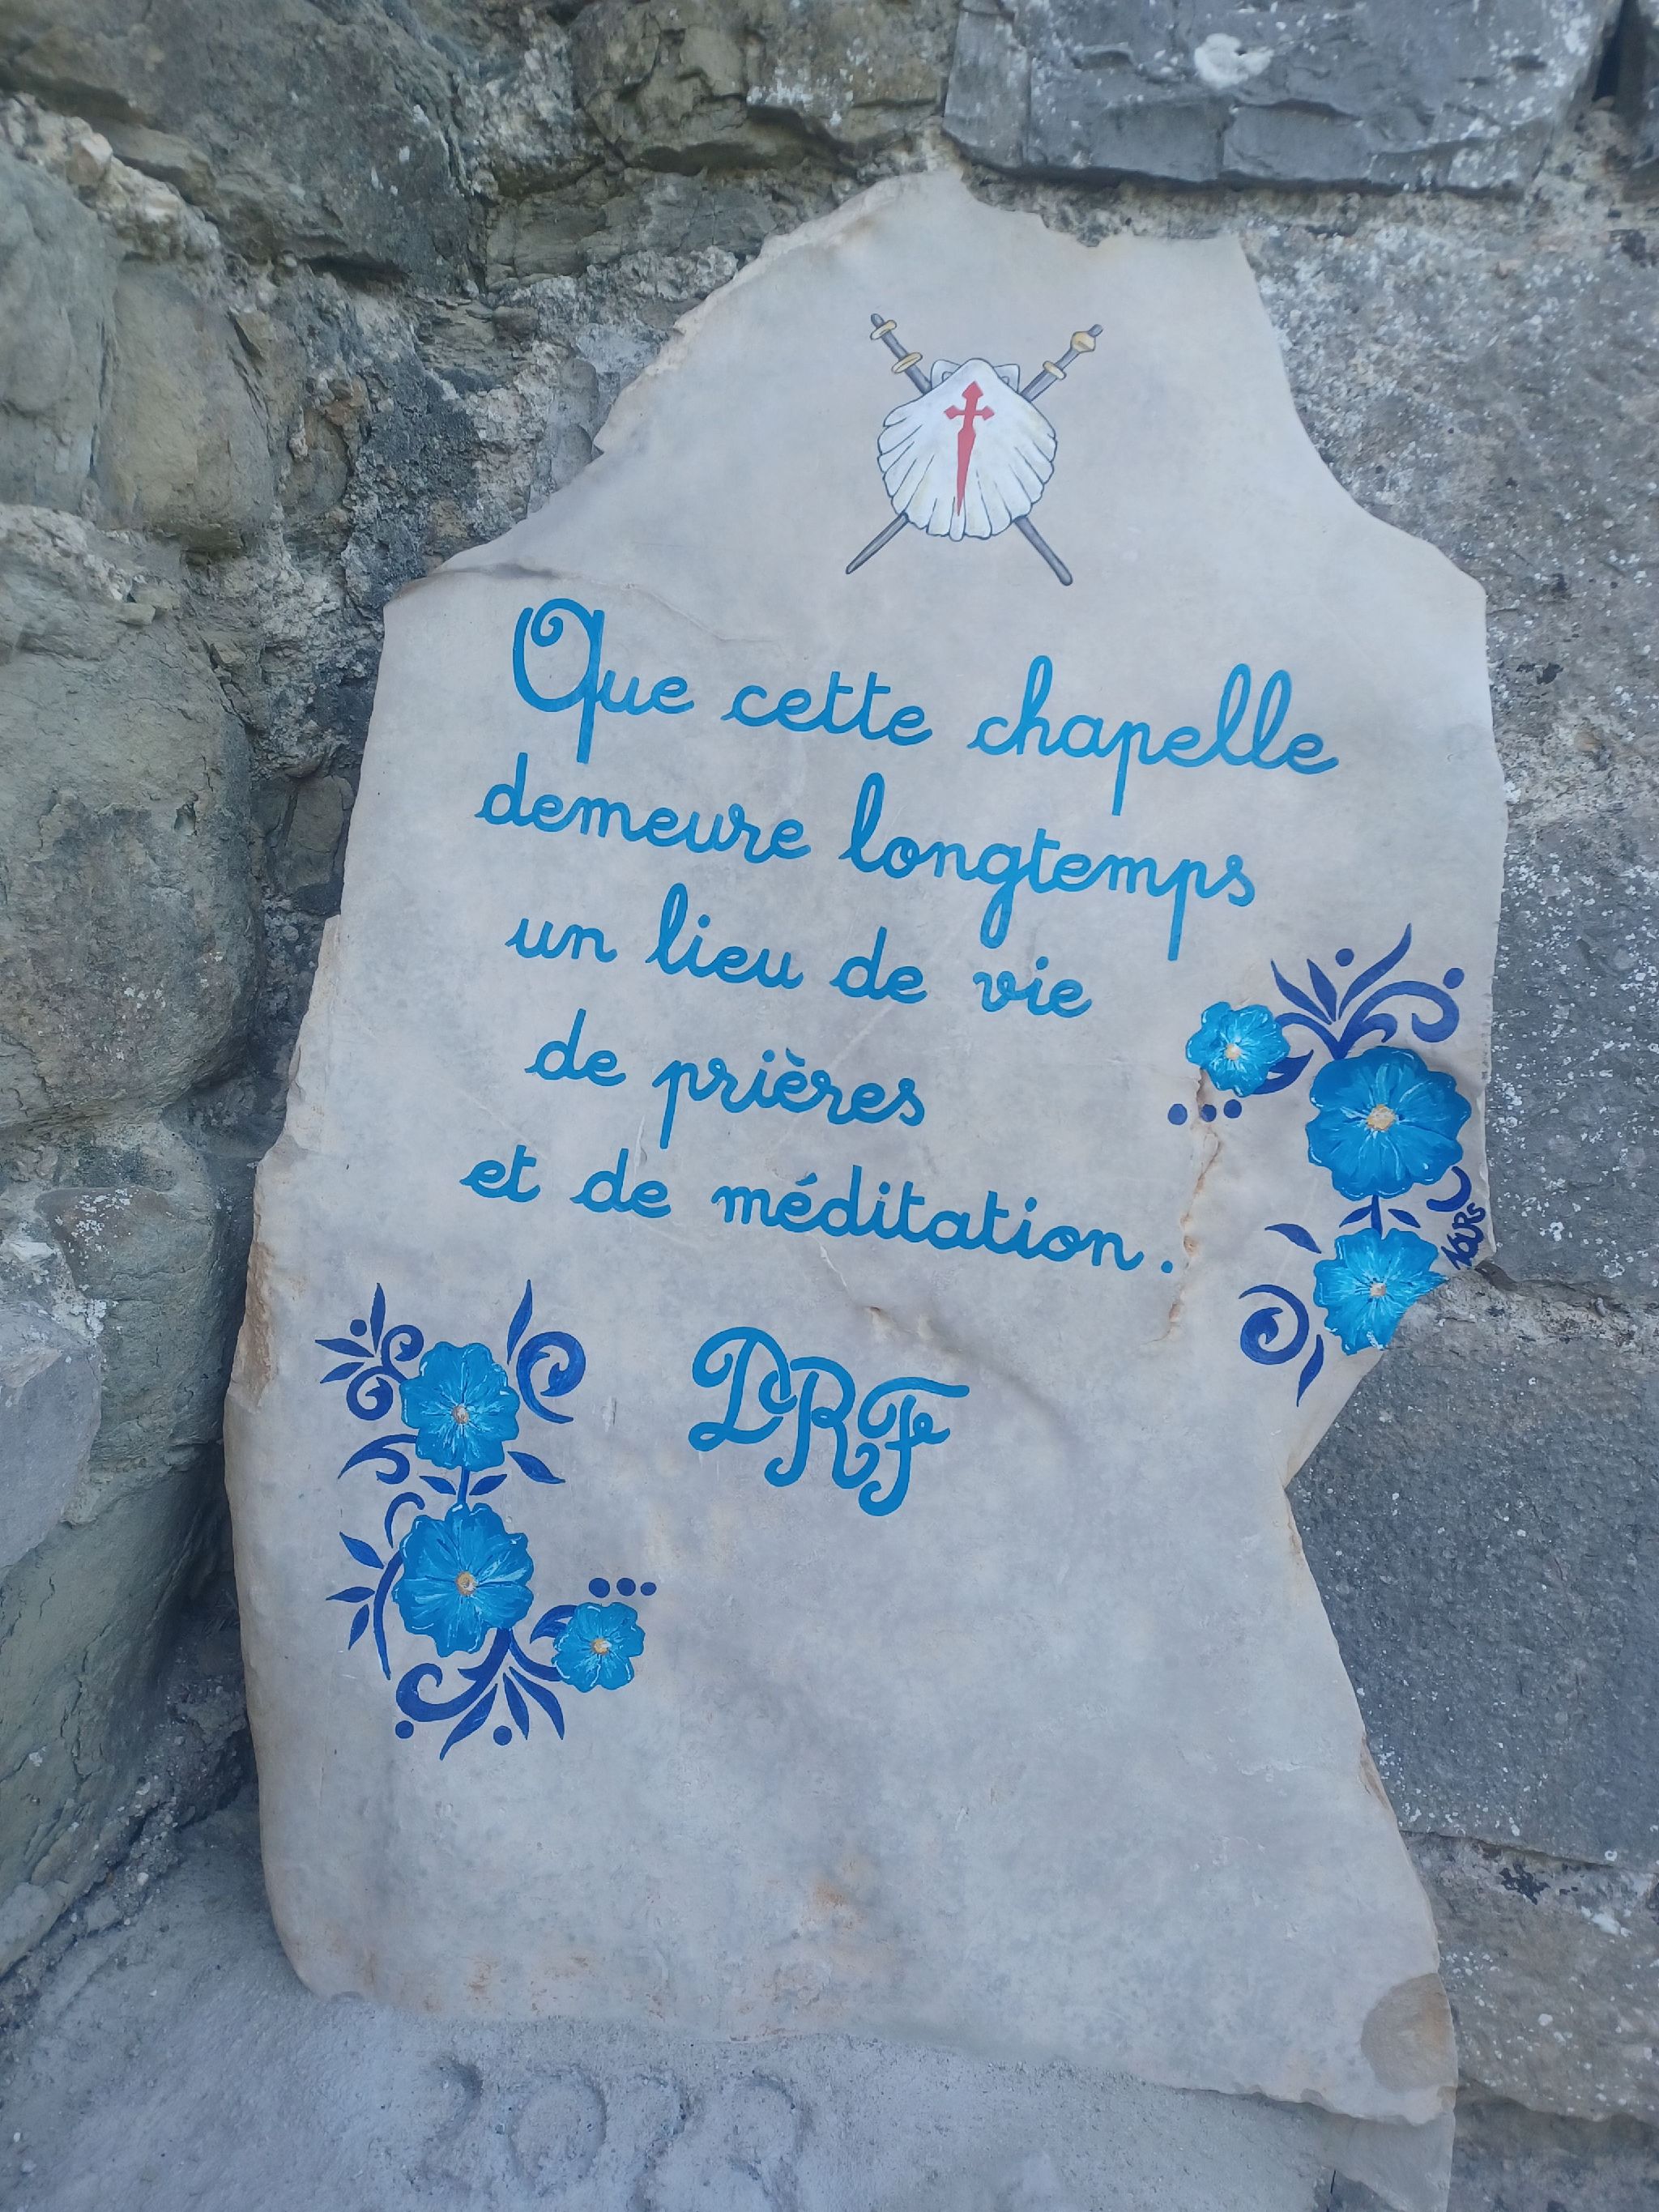 Que cette chapelle
demeure longtemps
un lieu de vie
de prières
et de méditation.
DRF